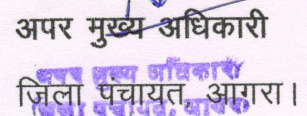 अपर मुख्य अधिकारी
अपर मुख्य अधिकारी
जिला पंचायत, आगरा।
जिला पंचायत, आगरा